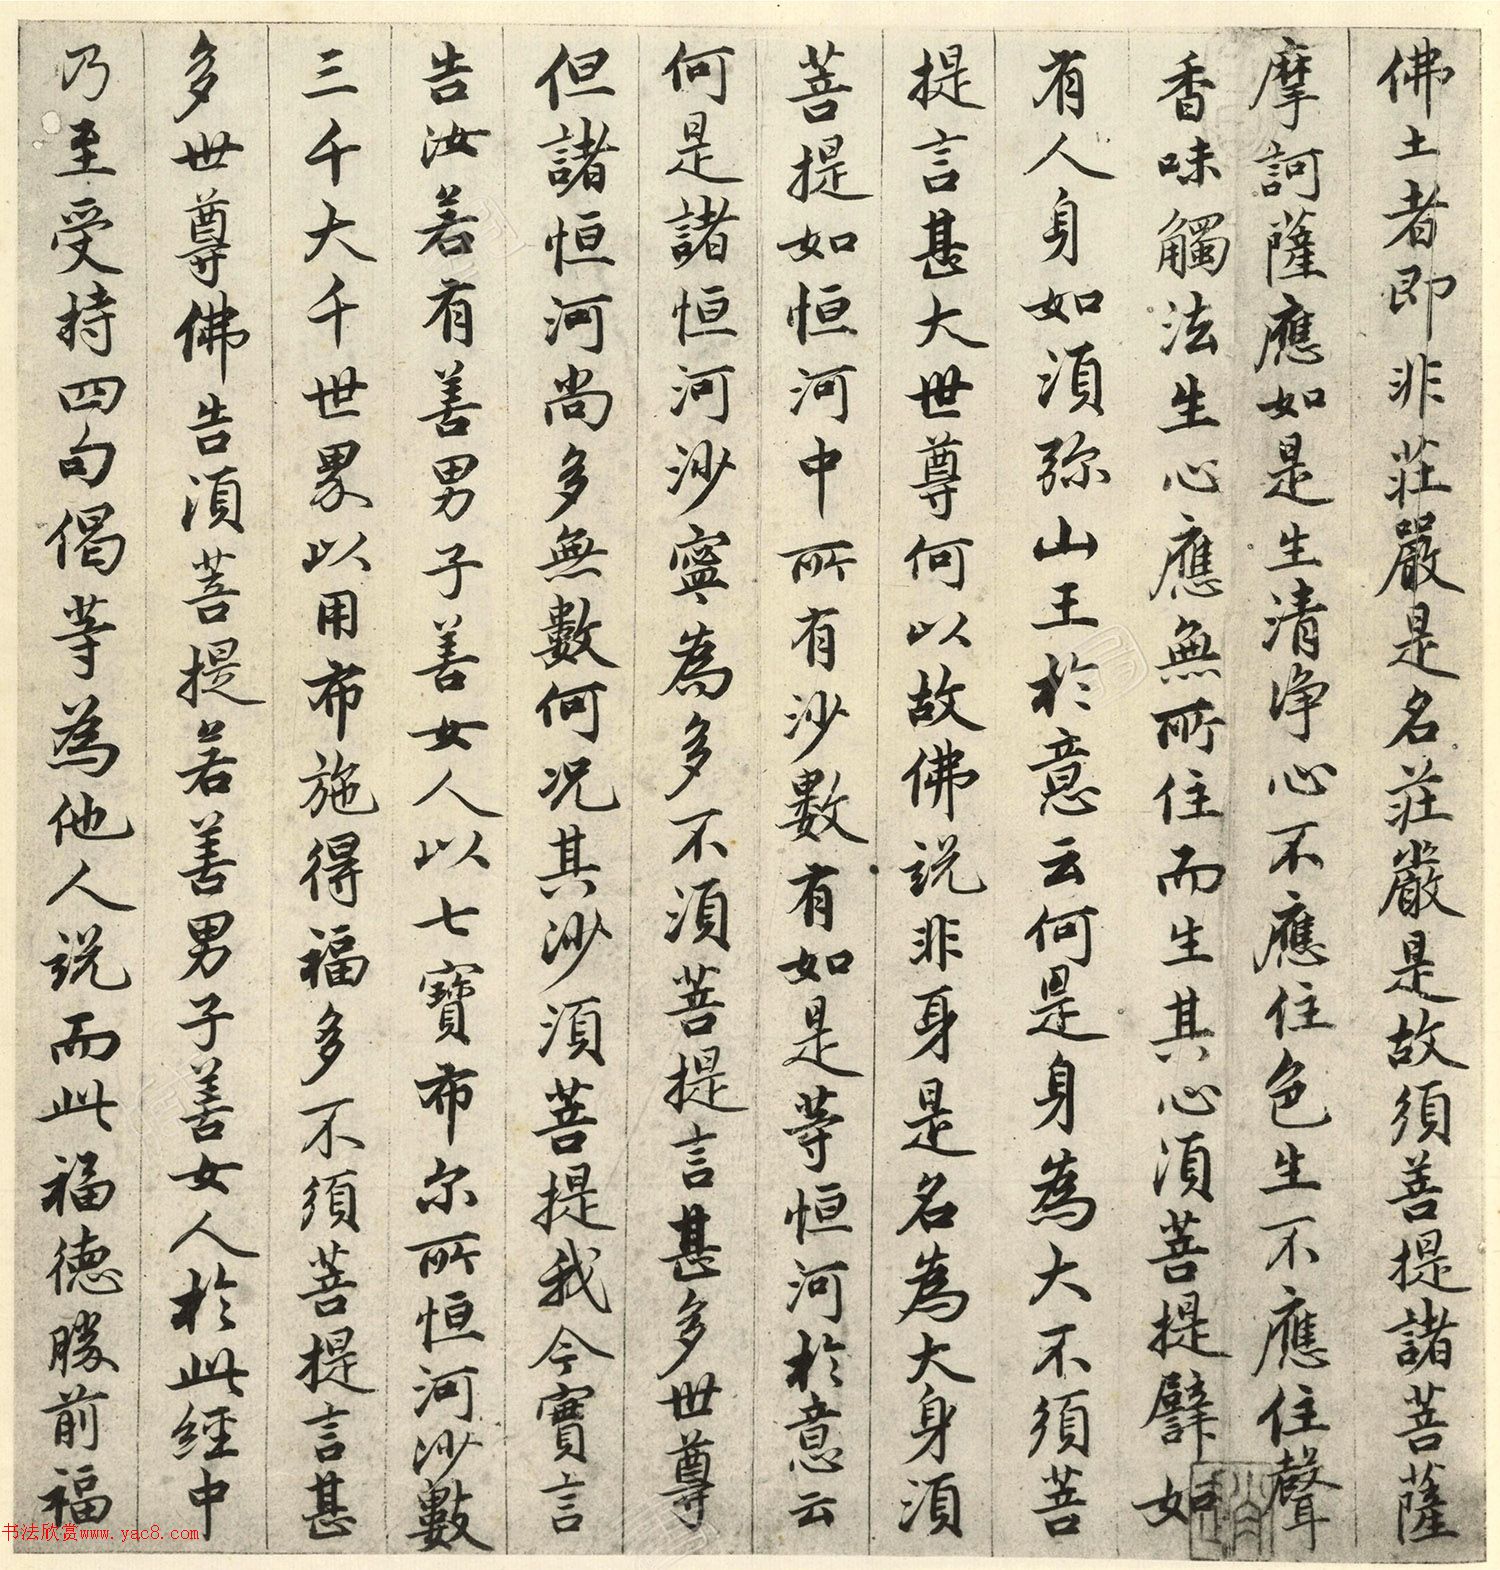 佛土者即非莊嚴是名莊嚴是故須菩提諸菩薩
摩訶薩應如是生清淨心不應住色生不應住聲
香味觸法生心應無所住而生其心須菩提譬如
有人身如須弥山王於意云何是身為大不須菩
提言甚大世尊何以故佛說非身是名為大身須
菩提如恒河中所有沙數有如是等恒河於意云
何是諸恒河沙寧為多不須菩提言甚多世尊
但諸恒河尚多無數何況其沙須菩提我今實言
告汝若有善男子善女人以七寶布尔所恒河沙數
三千大千世界以用布施得福多不須菩提言甚
多世尊佛告須菩提若善男子善女人於此經中
乃至受持四句偈等為他人說而此福德勝前福
书法欣赏www.yac8.com